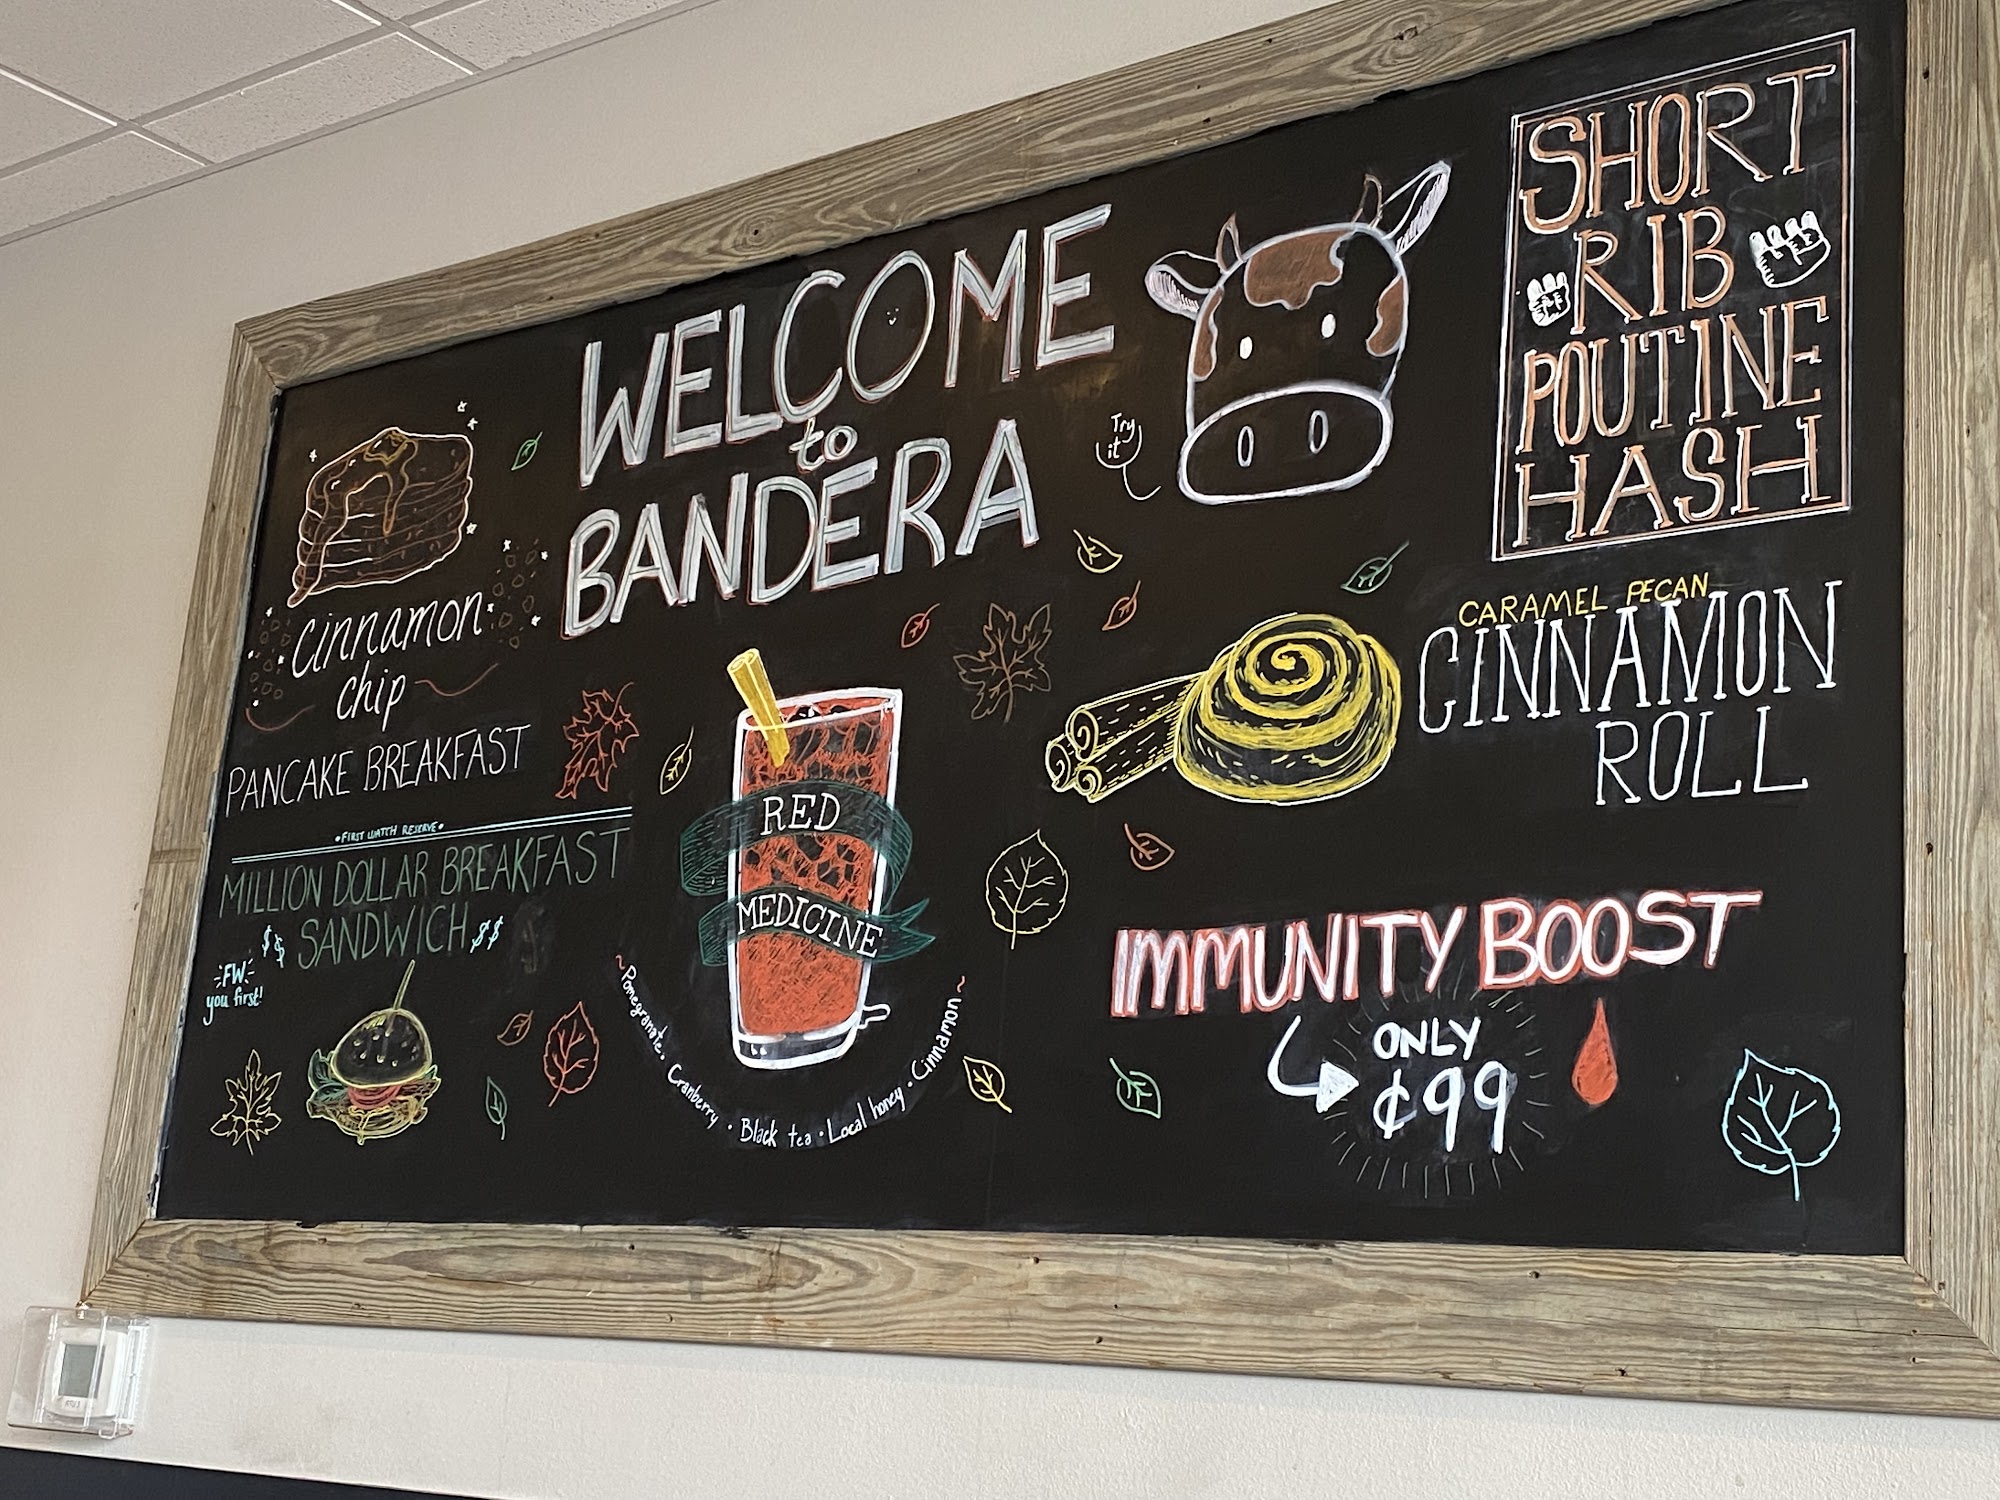 WELCOME
to
BANDERA
Try
it
SHORT
RIB
POUTINE
HASH
cinnamon
chip
PANCAKE BREAKFAST
•FIRST WATCH RESERVE•
MILLION DOLLAR BREAKFAST
$$ SANDWICH $$
FW
you first!
RED
MEDICINE
~Pomegranate. Cranberry • Black tea • Local honey • Cinnamon~
CARAMEL PECAN
CINNAMON
ROLL
IMMUNITY BOOST
ONLY
¢99